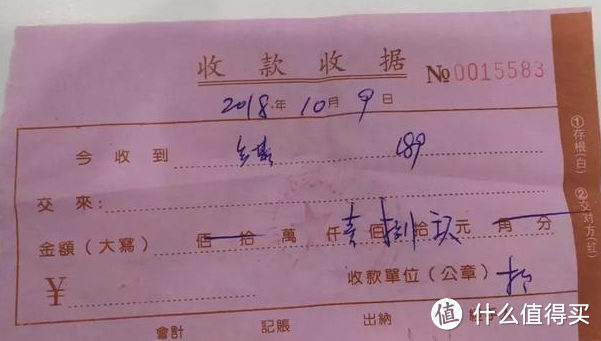 收款收据 №0015583
2018年10月9日
今收到 189
交来：
金额（大寫） 佰拾萬仟壹佰捌拾玖元角分
¥ 收款單位（公章）
會計 記賬 出納
①存根（白） ②交对方（红）
值 什么值得买